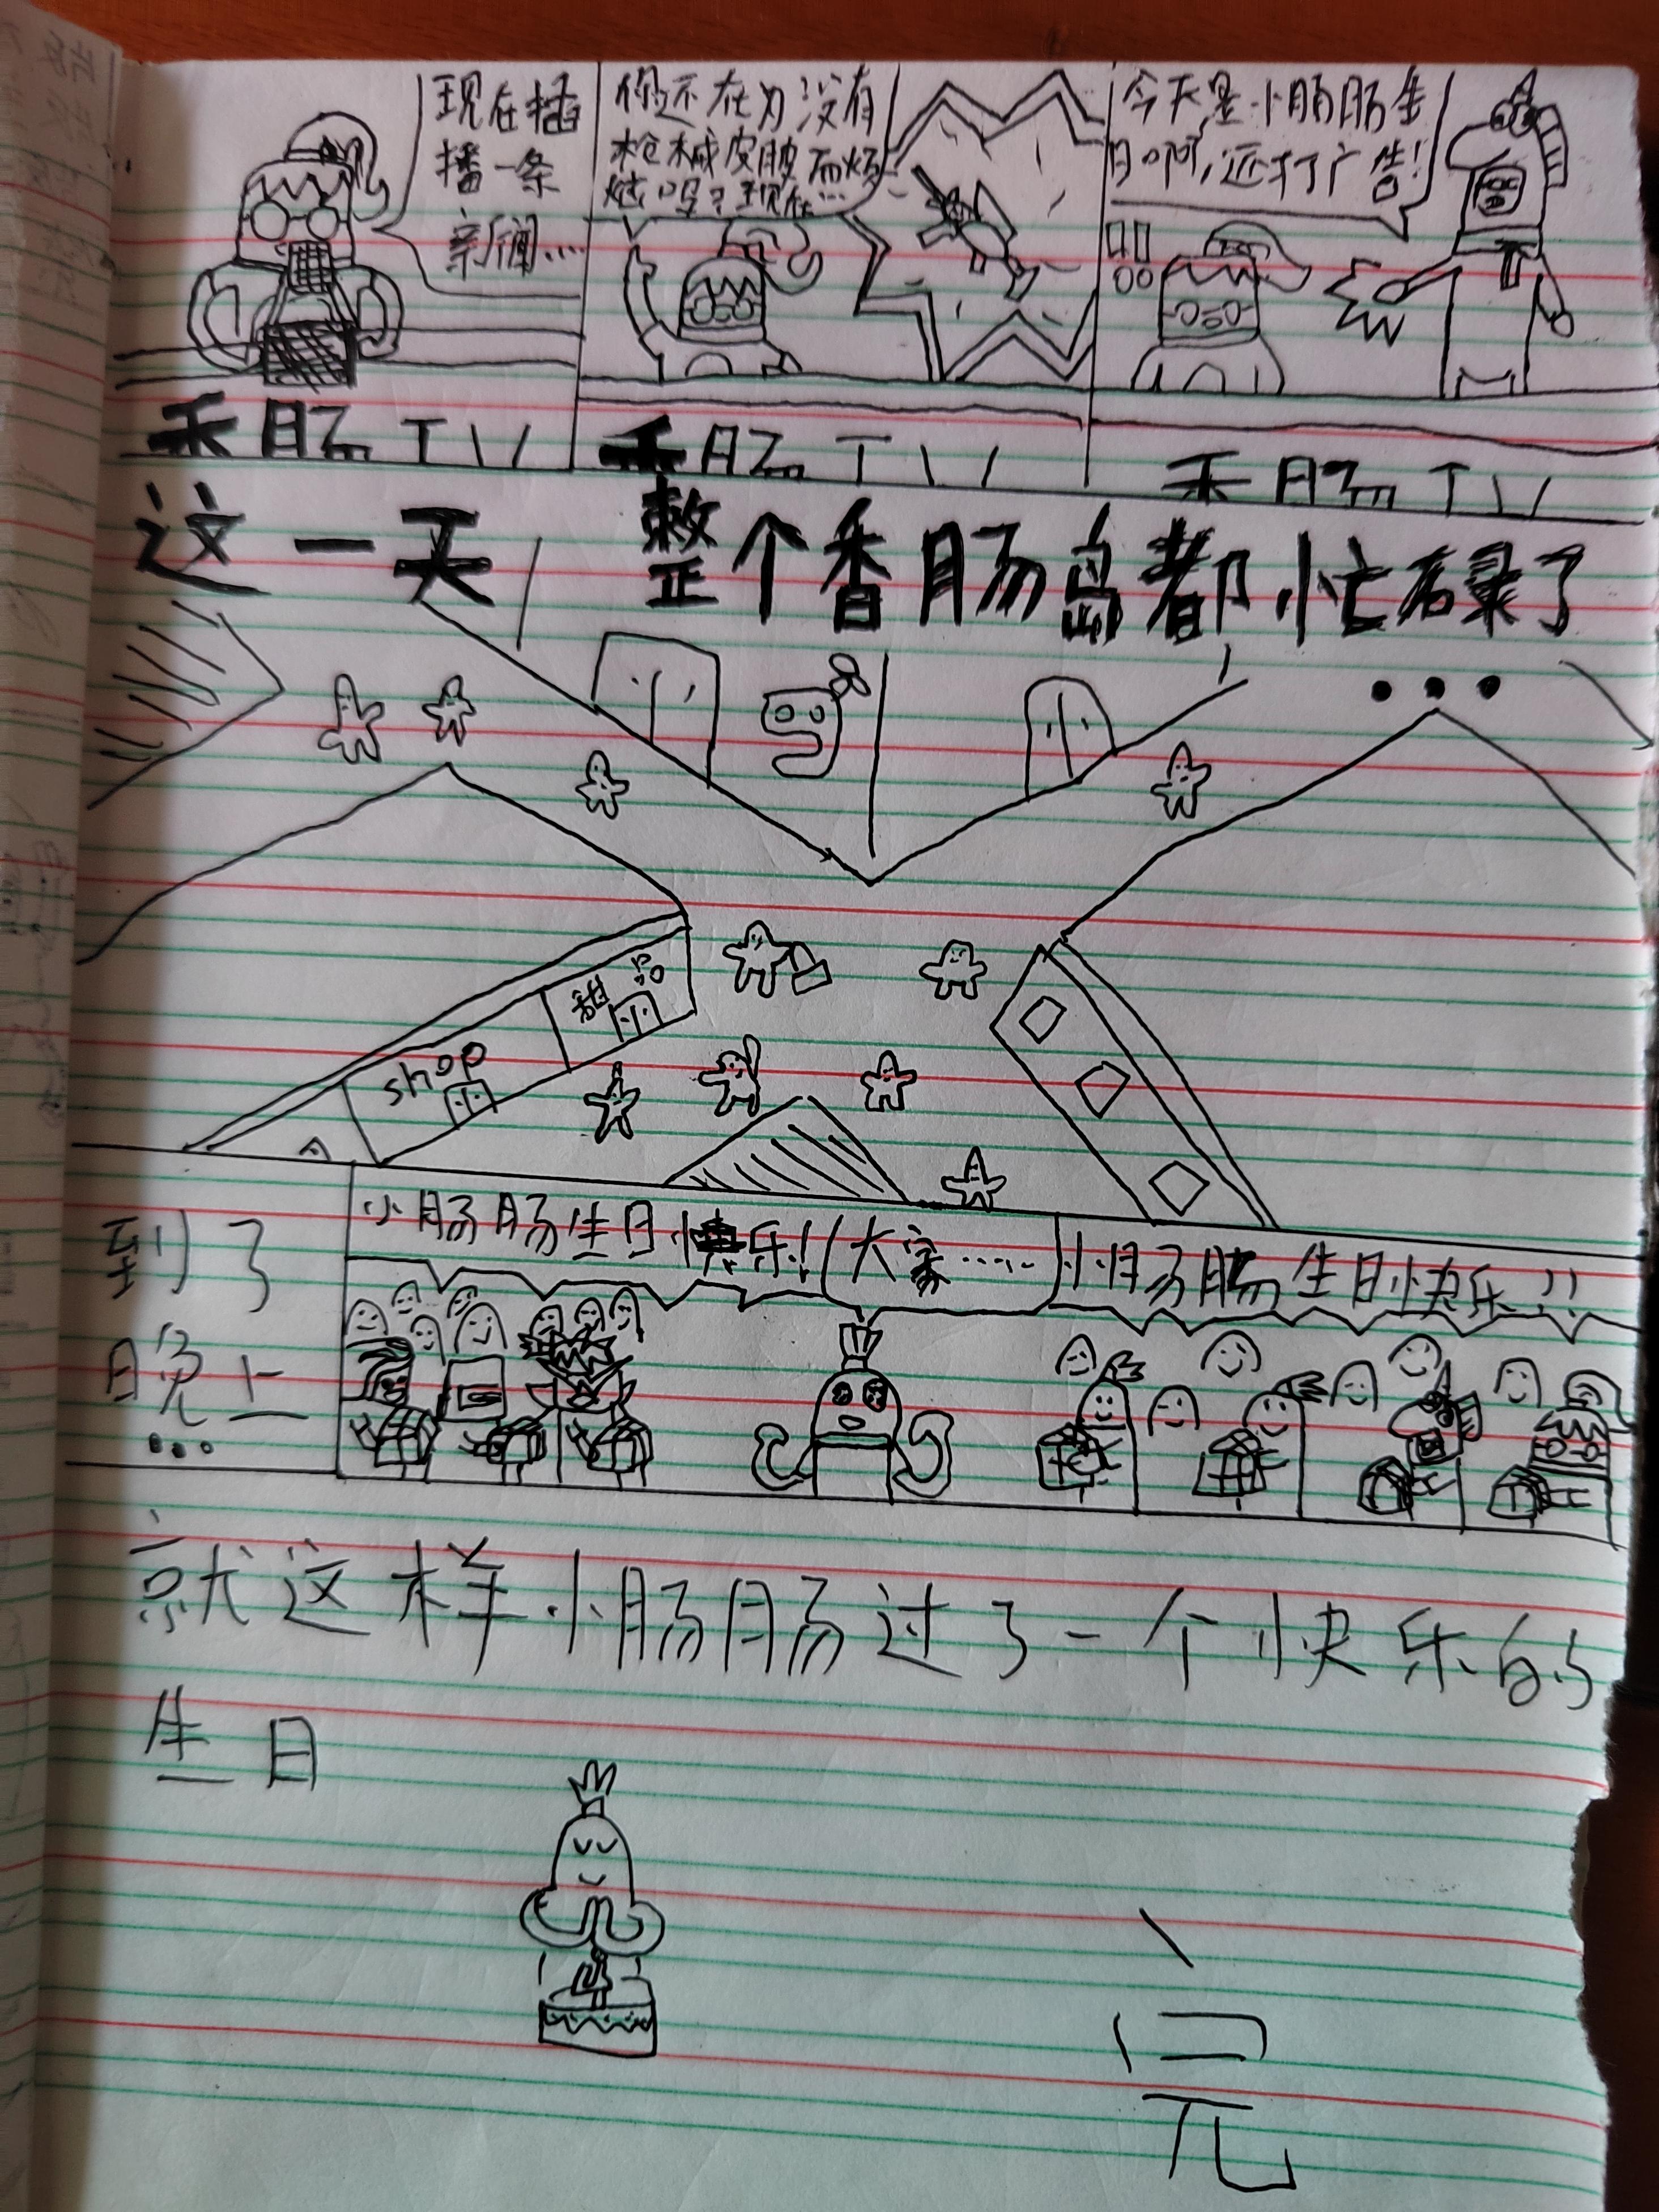 现在插
播一条
新闻…
你还在为没有
枪械皮肤而烦
恼吗？现在…
今天是小肠肠生
日啊，还打广告！
禾肠TV
禾肠TV
禾肠TV
这一天，整个香肠岛都忙碌了
…
甜品
shop
到了
晚上
…
小肠肠生日快乐！
大家……
小肠肠生日快乐！！
就这样小肠肠过了一个快乐的
生日
完